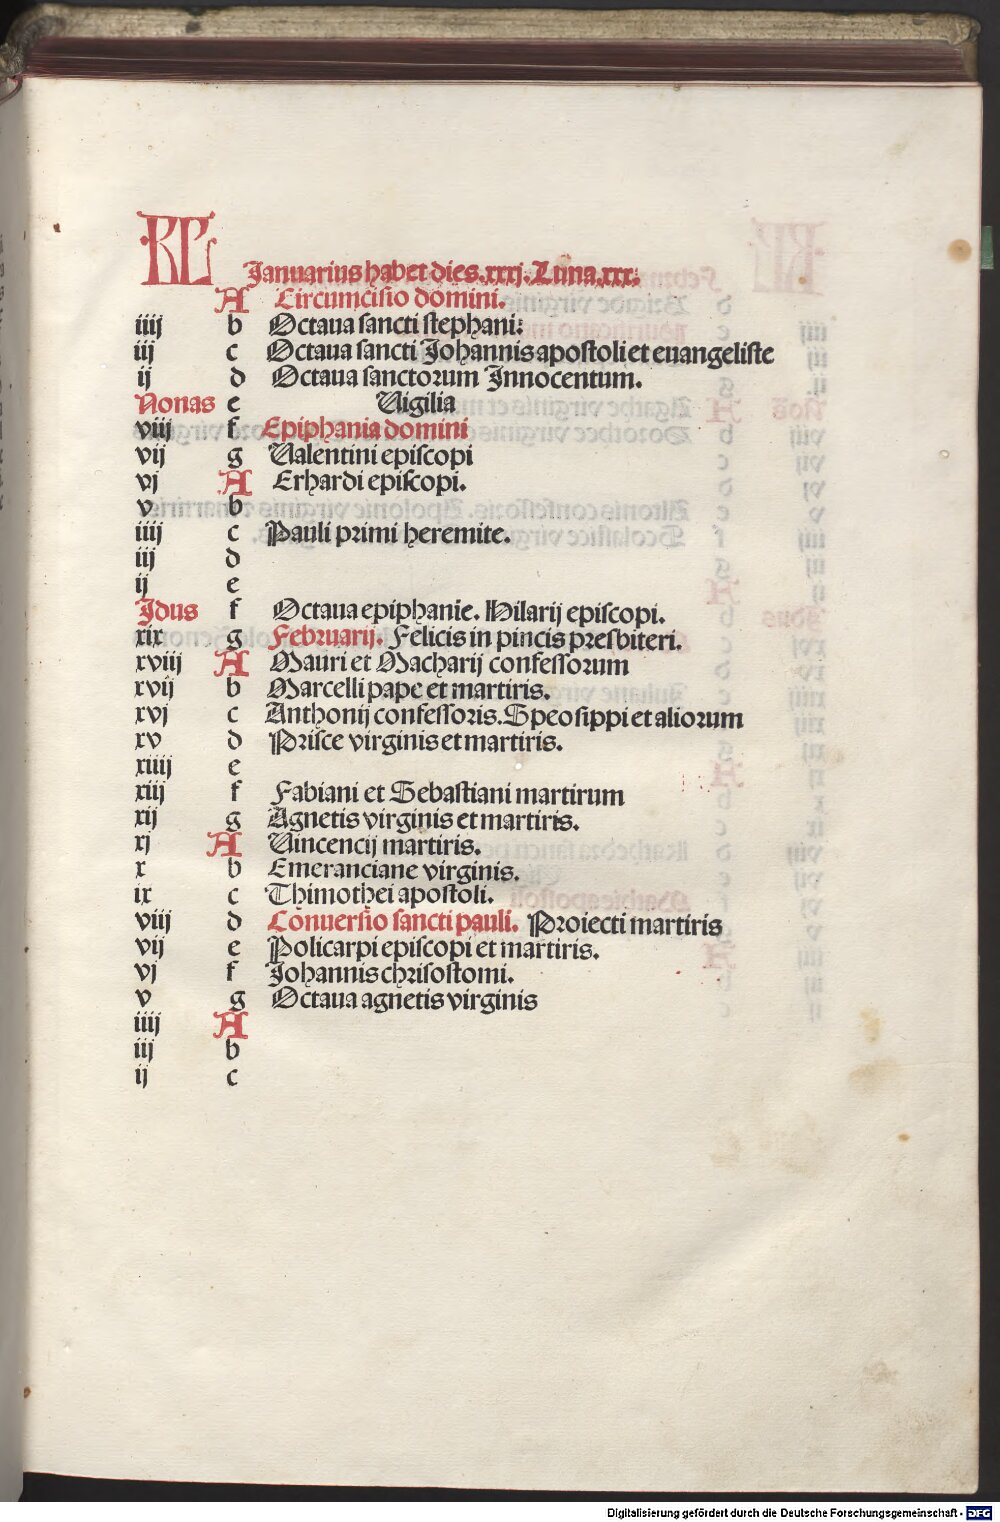 KL
Januarius habet dies.xxxj.Luna.xxx.
A Circumcisio domini.
iiij b Octaua sancti stephani:
iij c Octaua sancti Johannis apostoli et euangeliste
ij d Octaua sanctorum Innocentum.
Nonas e Vigilia
viij f Epiphania domini
vij g Valentini episcopi
vj A Erhardi episcopi.
v b
iiij c Pauli primi heremite.
iij d
ij e
Idus f Octaua epiphanie. Hilarij episcopi.
xix g Februarij. Felicis in pincis presbiteri.
xviij A Mauri et Macharij confessorum
xvij b Marcelli pape et martiris.
xvj c Anthonij confessoris. Speosippi et aliorum
xv d Prisce virginis et martiris.
xiiij e
xiij f Fabiani et Sebastiani martirum
xij g Agnetis virginis et martiris.
xj A Vincencij martiris.
x b Emeranciane virginis.
ix c Thimothei apostoli.
viij d Conuersio sancti pauli. Proiecti martiris
vij e Policarpi episcopi et martiris.
vj f Johannis chrisostomi.
v g Octaua agnetis virginis
iiij A
iij b
ij c
Digitalisierung gefördert durch die Deutsche Forschungsgemeinschaft - DFG